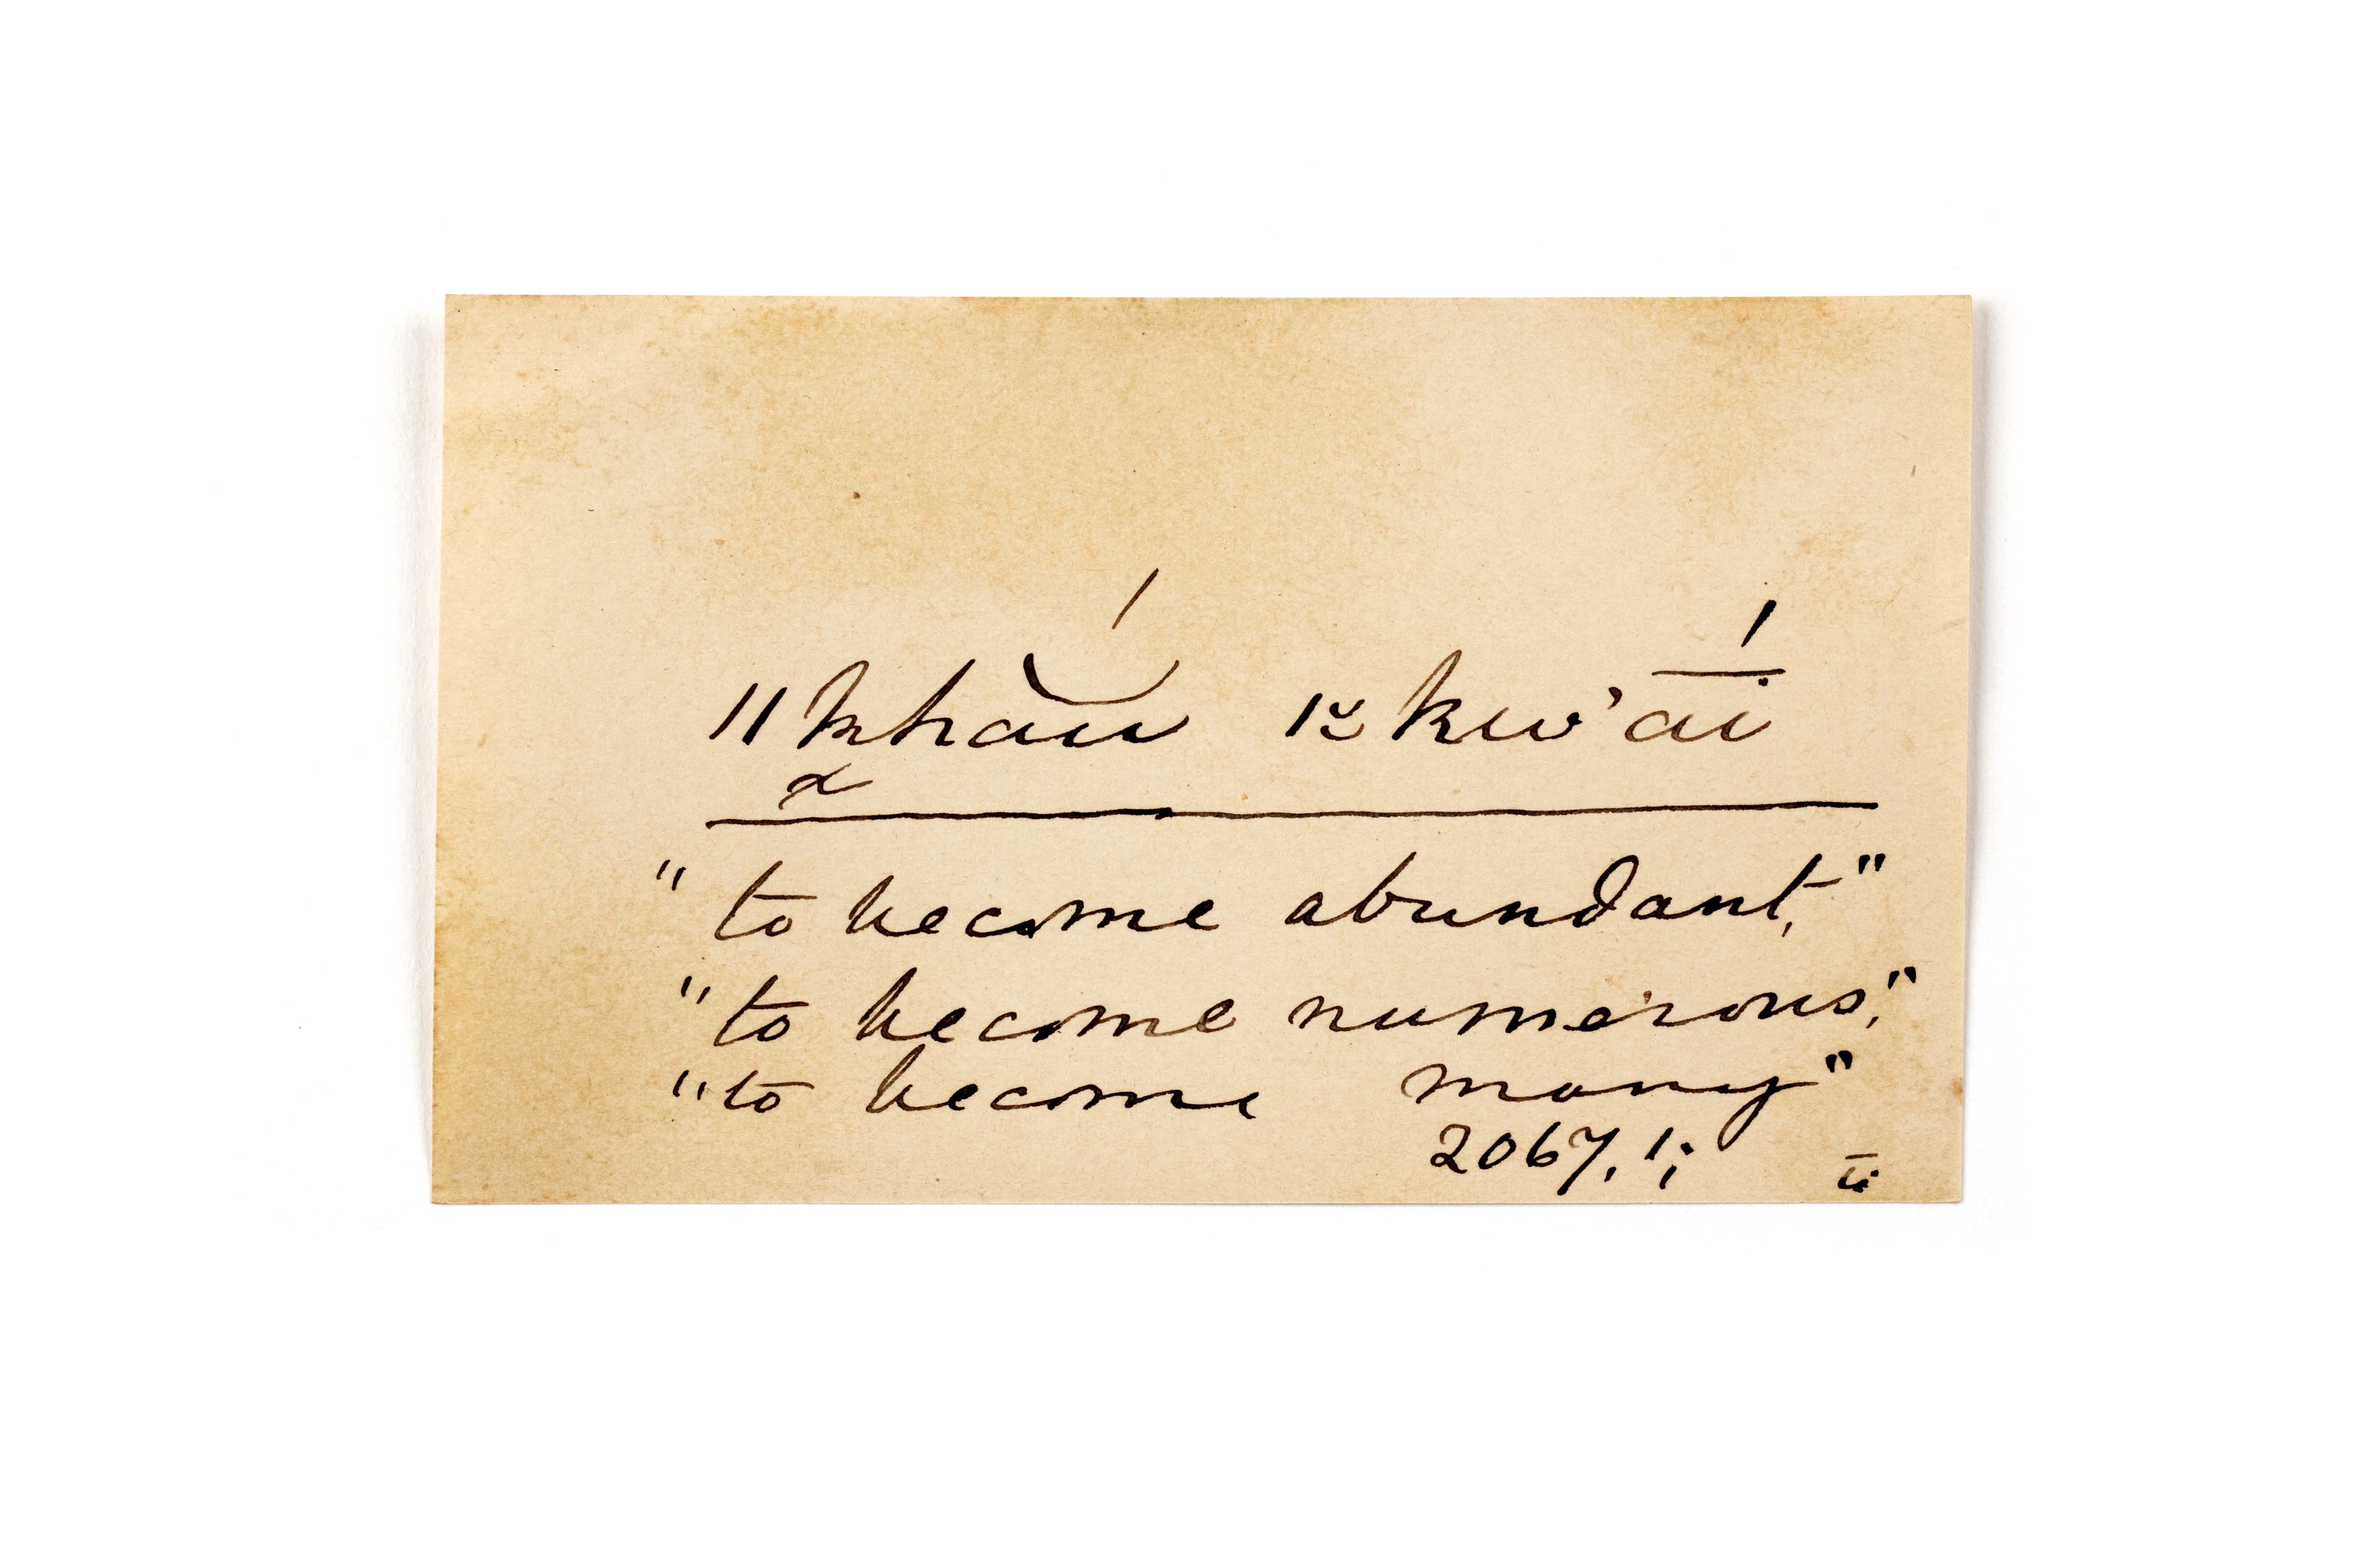 ǁkhăú̯ ǀ˭kwʼā́i
"to become abundant,"
"to become numerous,"
"to become many"
2067, 1;